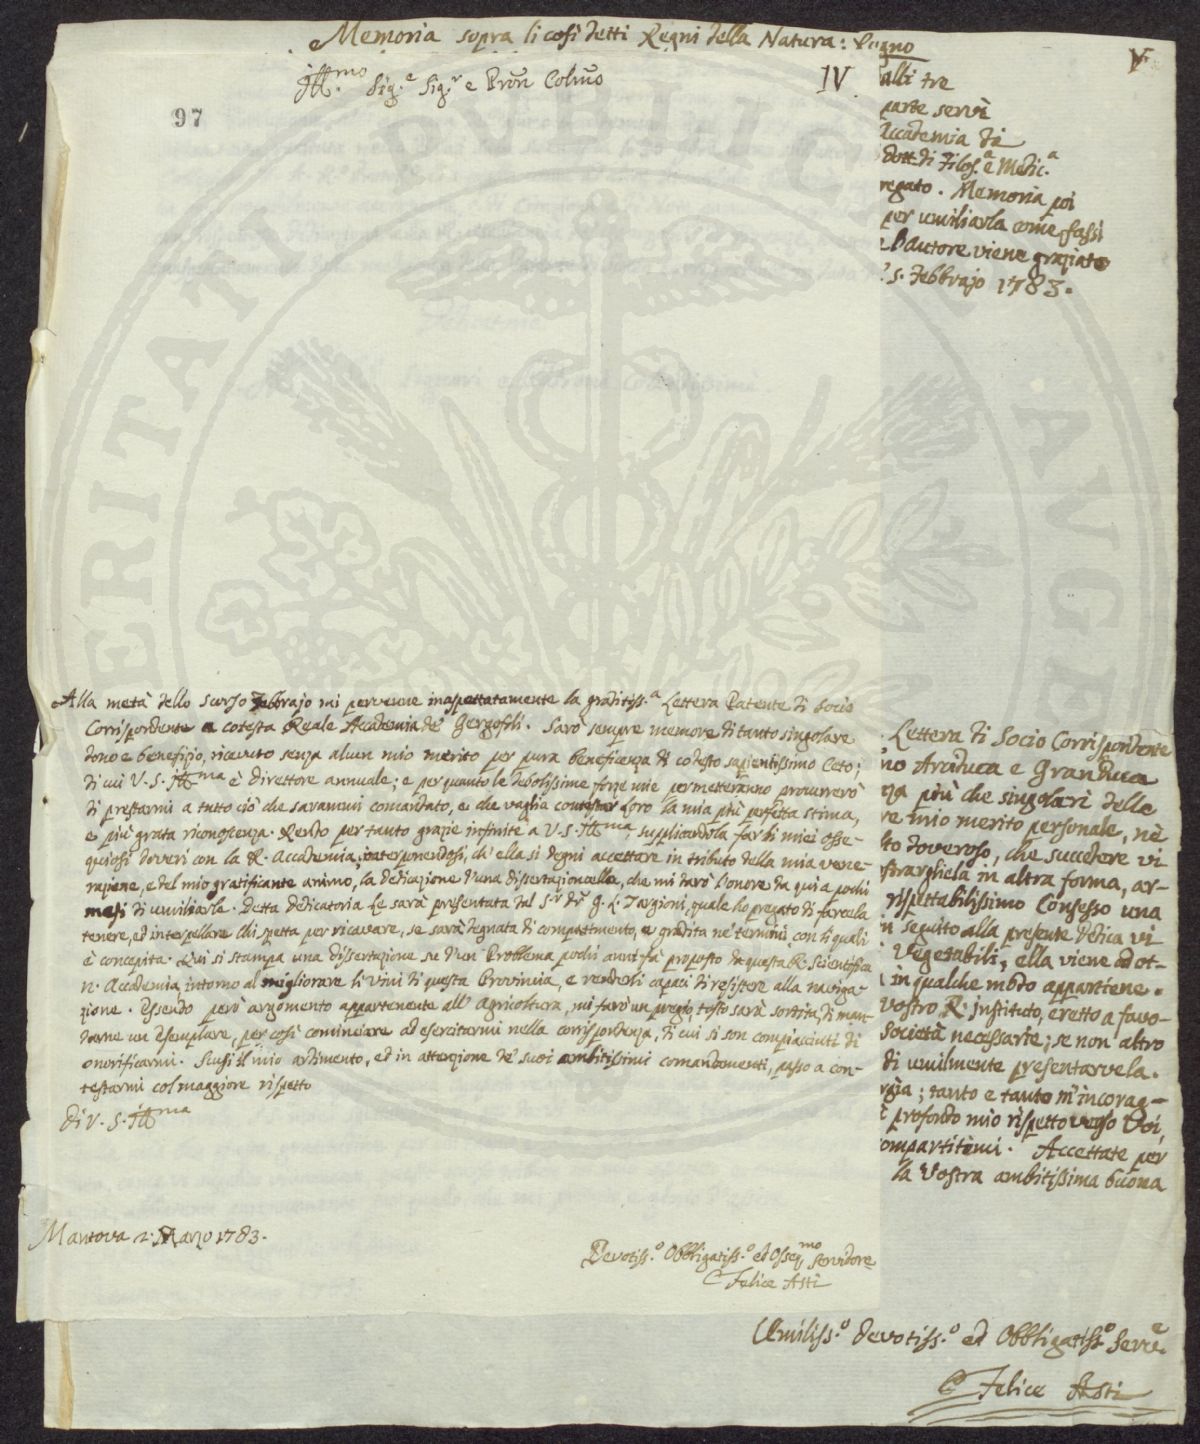 Memoria sopra li così detti Regni della Natura:
Ill.mo Sig.e Sig.r e Pron Colmo
IV
V
97
alli tre
parte servì
Accademia di
dott. di Filos.a e Medic.a
regato. Memoria poi
per umiliarla come fassi
l'autore viene graziato
5. Febbrajo 1783.
PUBLICAE
PROSPERITATI AUGENDAE
Alla metà dello scorso Febbrajo mi pervenne inaspettatamente la graditiss.a Lettera Patente di Socio
Corrispondente a cotesta Reale Accademia de' Gergofili. Sarò sempre memore di tanto singolare
dono e benefizio, ricevuto senza alcun mio merito per pura beneficenza di codesto sapientissimo Ceto;
di cui V. S. Ill.ma è direttore annuale; e per quanto le debolissime forze mie permetteranno procurerò
di prestarmi a tutto ciò che sarammi comandato, e che vaglia contestar Loro la mia più perfetta stima,
e più grata riconoscenza. Rendo per tanto grazie infinite a V. S. Ill.ma supplicandola far di miei osse-
quiosi doveri con la R. Accademia, interponendosi, ch' ella si degni accettare in tributo della mia vene-
razione, e del mio gratificante animo, la dedicazione d'una dissertazioncella, che mi darò l'onore da qui a pochi
mesi di umiliarle. Detta dedicatoria Le sarà presentata dal S.r dr. G. L. Targioni, quale ho pregato di farcela
tenere, ed interpellare chi spetta per ricavare, se sarà degnata di compatimento, e gradita ne' termini con li quali
è concepita. Qui si stampa una dissertazione su d'un Problema pochi anni fà proposto da questa R. Scientifica
n. Accademia intorno al migliorare li vini di questa Provincia, e renderli capaci di resistere alla naviga-
zione. Essendo però argomento appartenente all' Agricoltura, mi farò un pregio, tosto sarà sortita, di man-
darne un Esemplare, per così cominciare ad esercitarmi nella corrispondenza, di cui si son compiaciuti di
onorificarmi. Scusi il mio ardimento, ed in attenzione de' suoi ambitissimi comandamenti, passo a con-
testarmi col maggiore rispetto
di V. S. Ill.ma
Mantova 2. Marzo 1783.
Devotiss.o Obbligatiss.o ed Osseq.mo Servidore
Felice Asti
Lettera di Socio Corrispondente
no Arciduca e Granduca
za più che singolari della
re mio merito personale, nè
to doveroso, che succedere vi
strargliela in altra forma, ar-
rispettabilissimo Consesso una
n seguito alla presente dedica vi
Vegetabili, ella viene ad ot-
in qualche modo appartiene.
vostro R. instituto, eretto a favo-
Società necessarie; se non altro
di umilmente presentarvela.
rgìa; tanto e tanto m'incorag-
profondo mio rispetto verso Voi,
ompartitemi. Accettate per
la Vostra ambitissima buona
Umiliss.o devotiss.o ed Obbligatiss.o Serv.e
Felice Asti